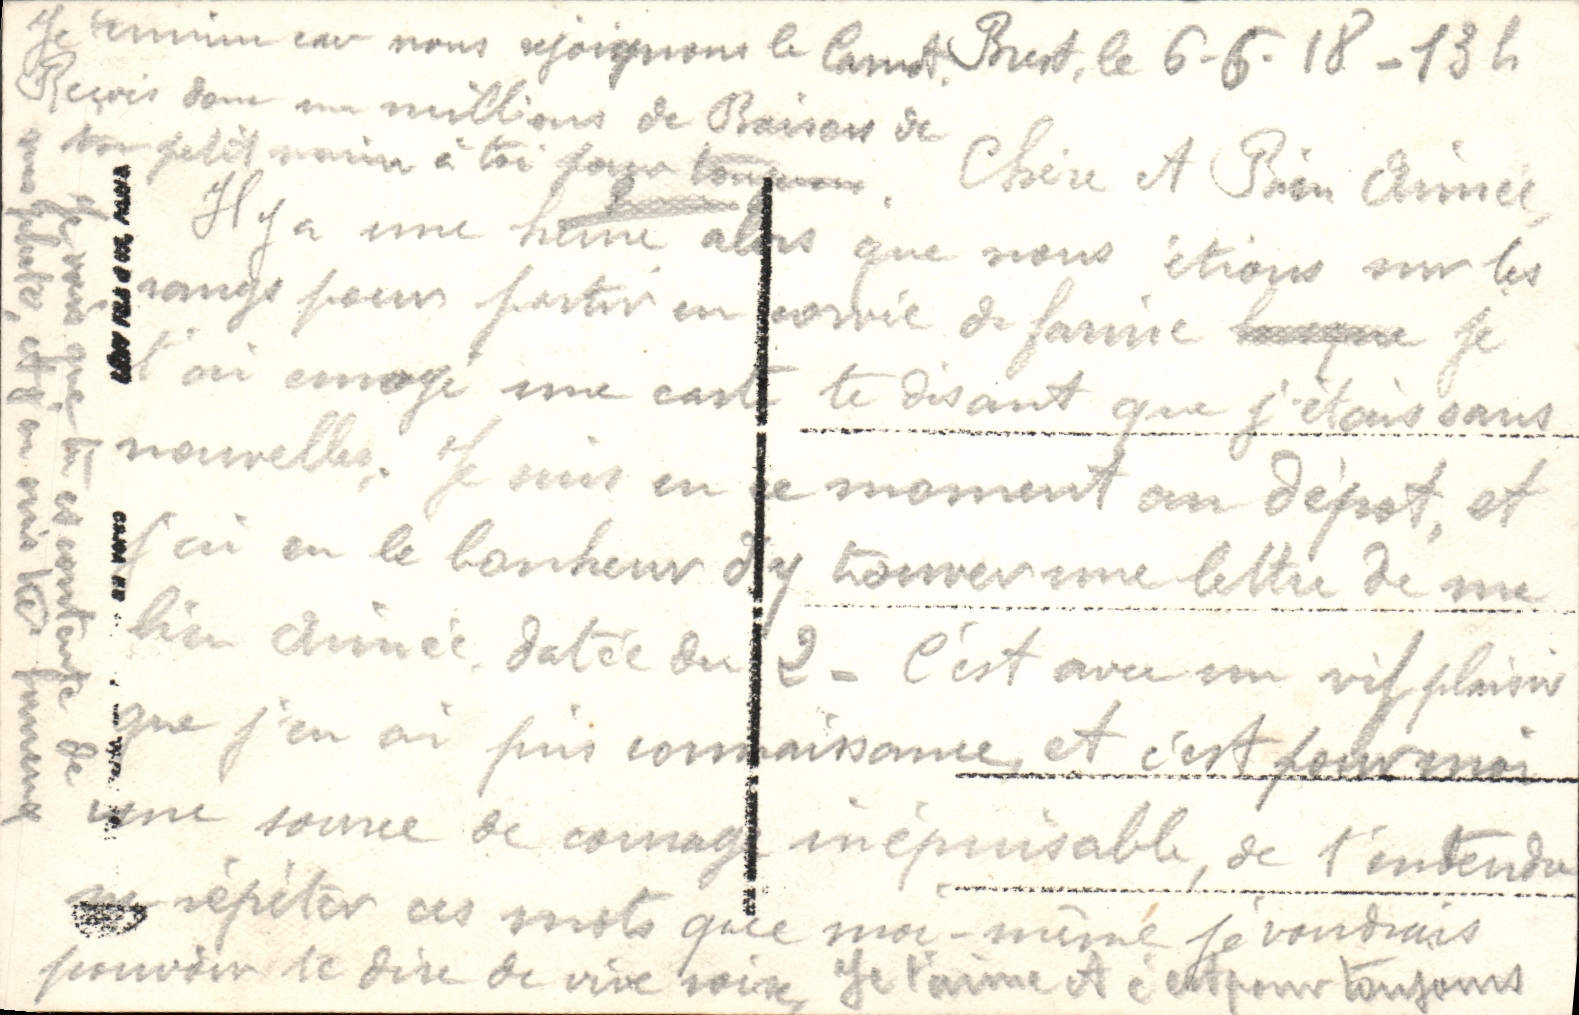 Brest, le 6-6-18 - 13 h
Chère et Bien Aimée,
Il y a une heure alors que nous étions sur les
rangs pour partir en corvée de farine je
t'ai envoyé une carte te disant que j'étais sans
nouvelles. Je suis en ce moment au dépot, et
j'ai eu le bonheur d'y trouver une lettre de ma
bien Aimée, datée du 2 - C'est avec un vif plaisir
que j'en ai pris connaissance, et c'est pour moi
une source de courage inépuisable, de t'entendre
me répéter ces mots que moi-même je voudrais
pouvoir te dire de vive voix, Je t'aime et c'est pour toujours
Je vois que tu es contente de
ma photo, et j'en suis très
Je termine car nous rejoignons le Carnot.
Reçois donc un millions de Baisers de
ton petit marin à toi pour toujours.